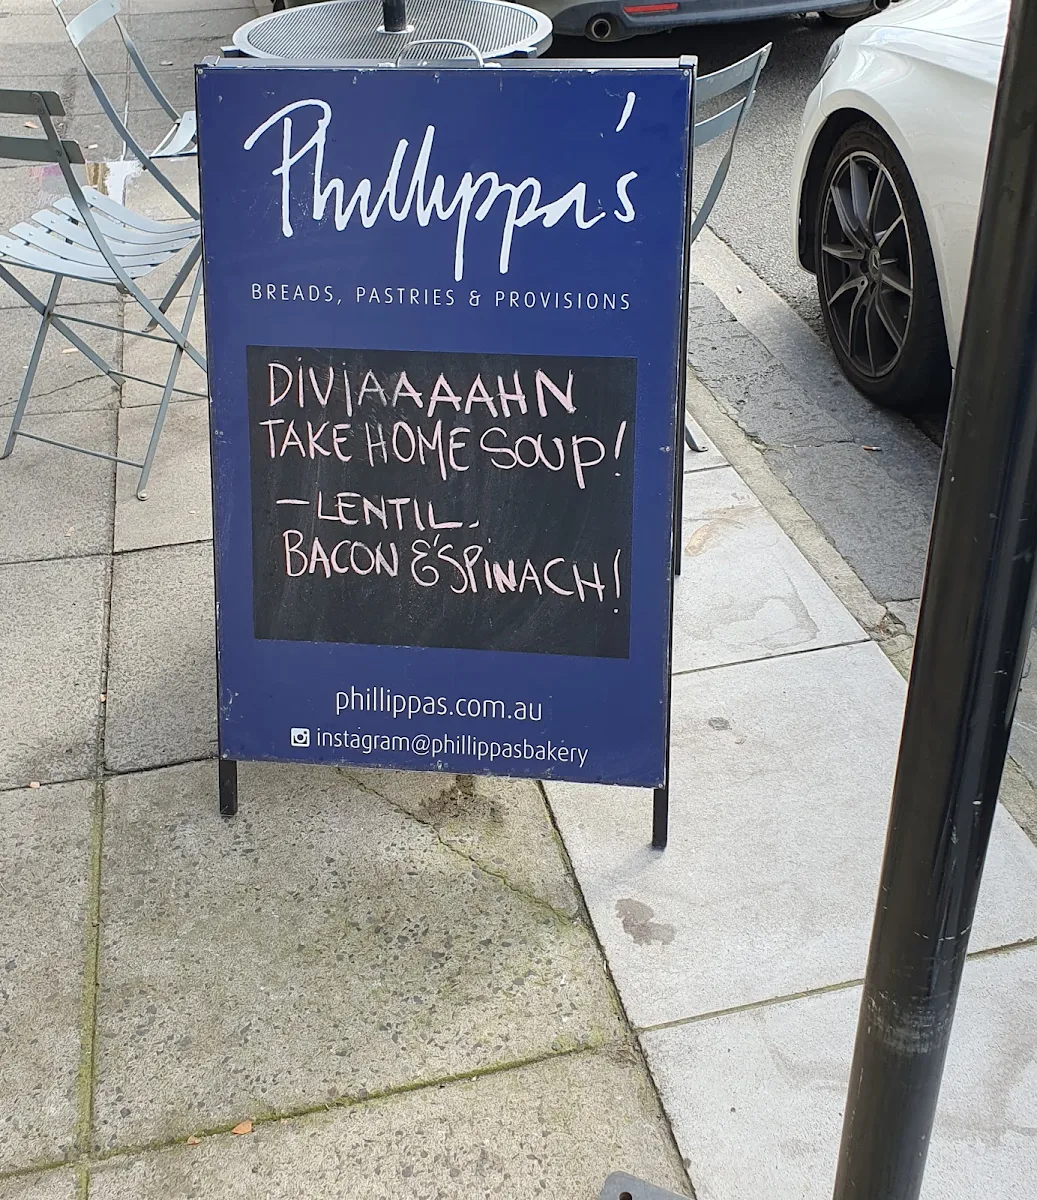 Phillippa's
BREADS, PASTRIES & PROVISIONS
DIVIAAAAHN
TAKE HOME SOUP!
- LENTIL,
BACON & SPINACH!
phillippas.com.au
instagram@phillippasbakery